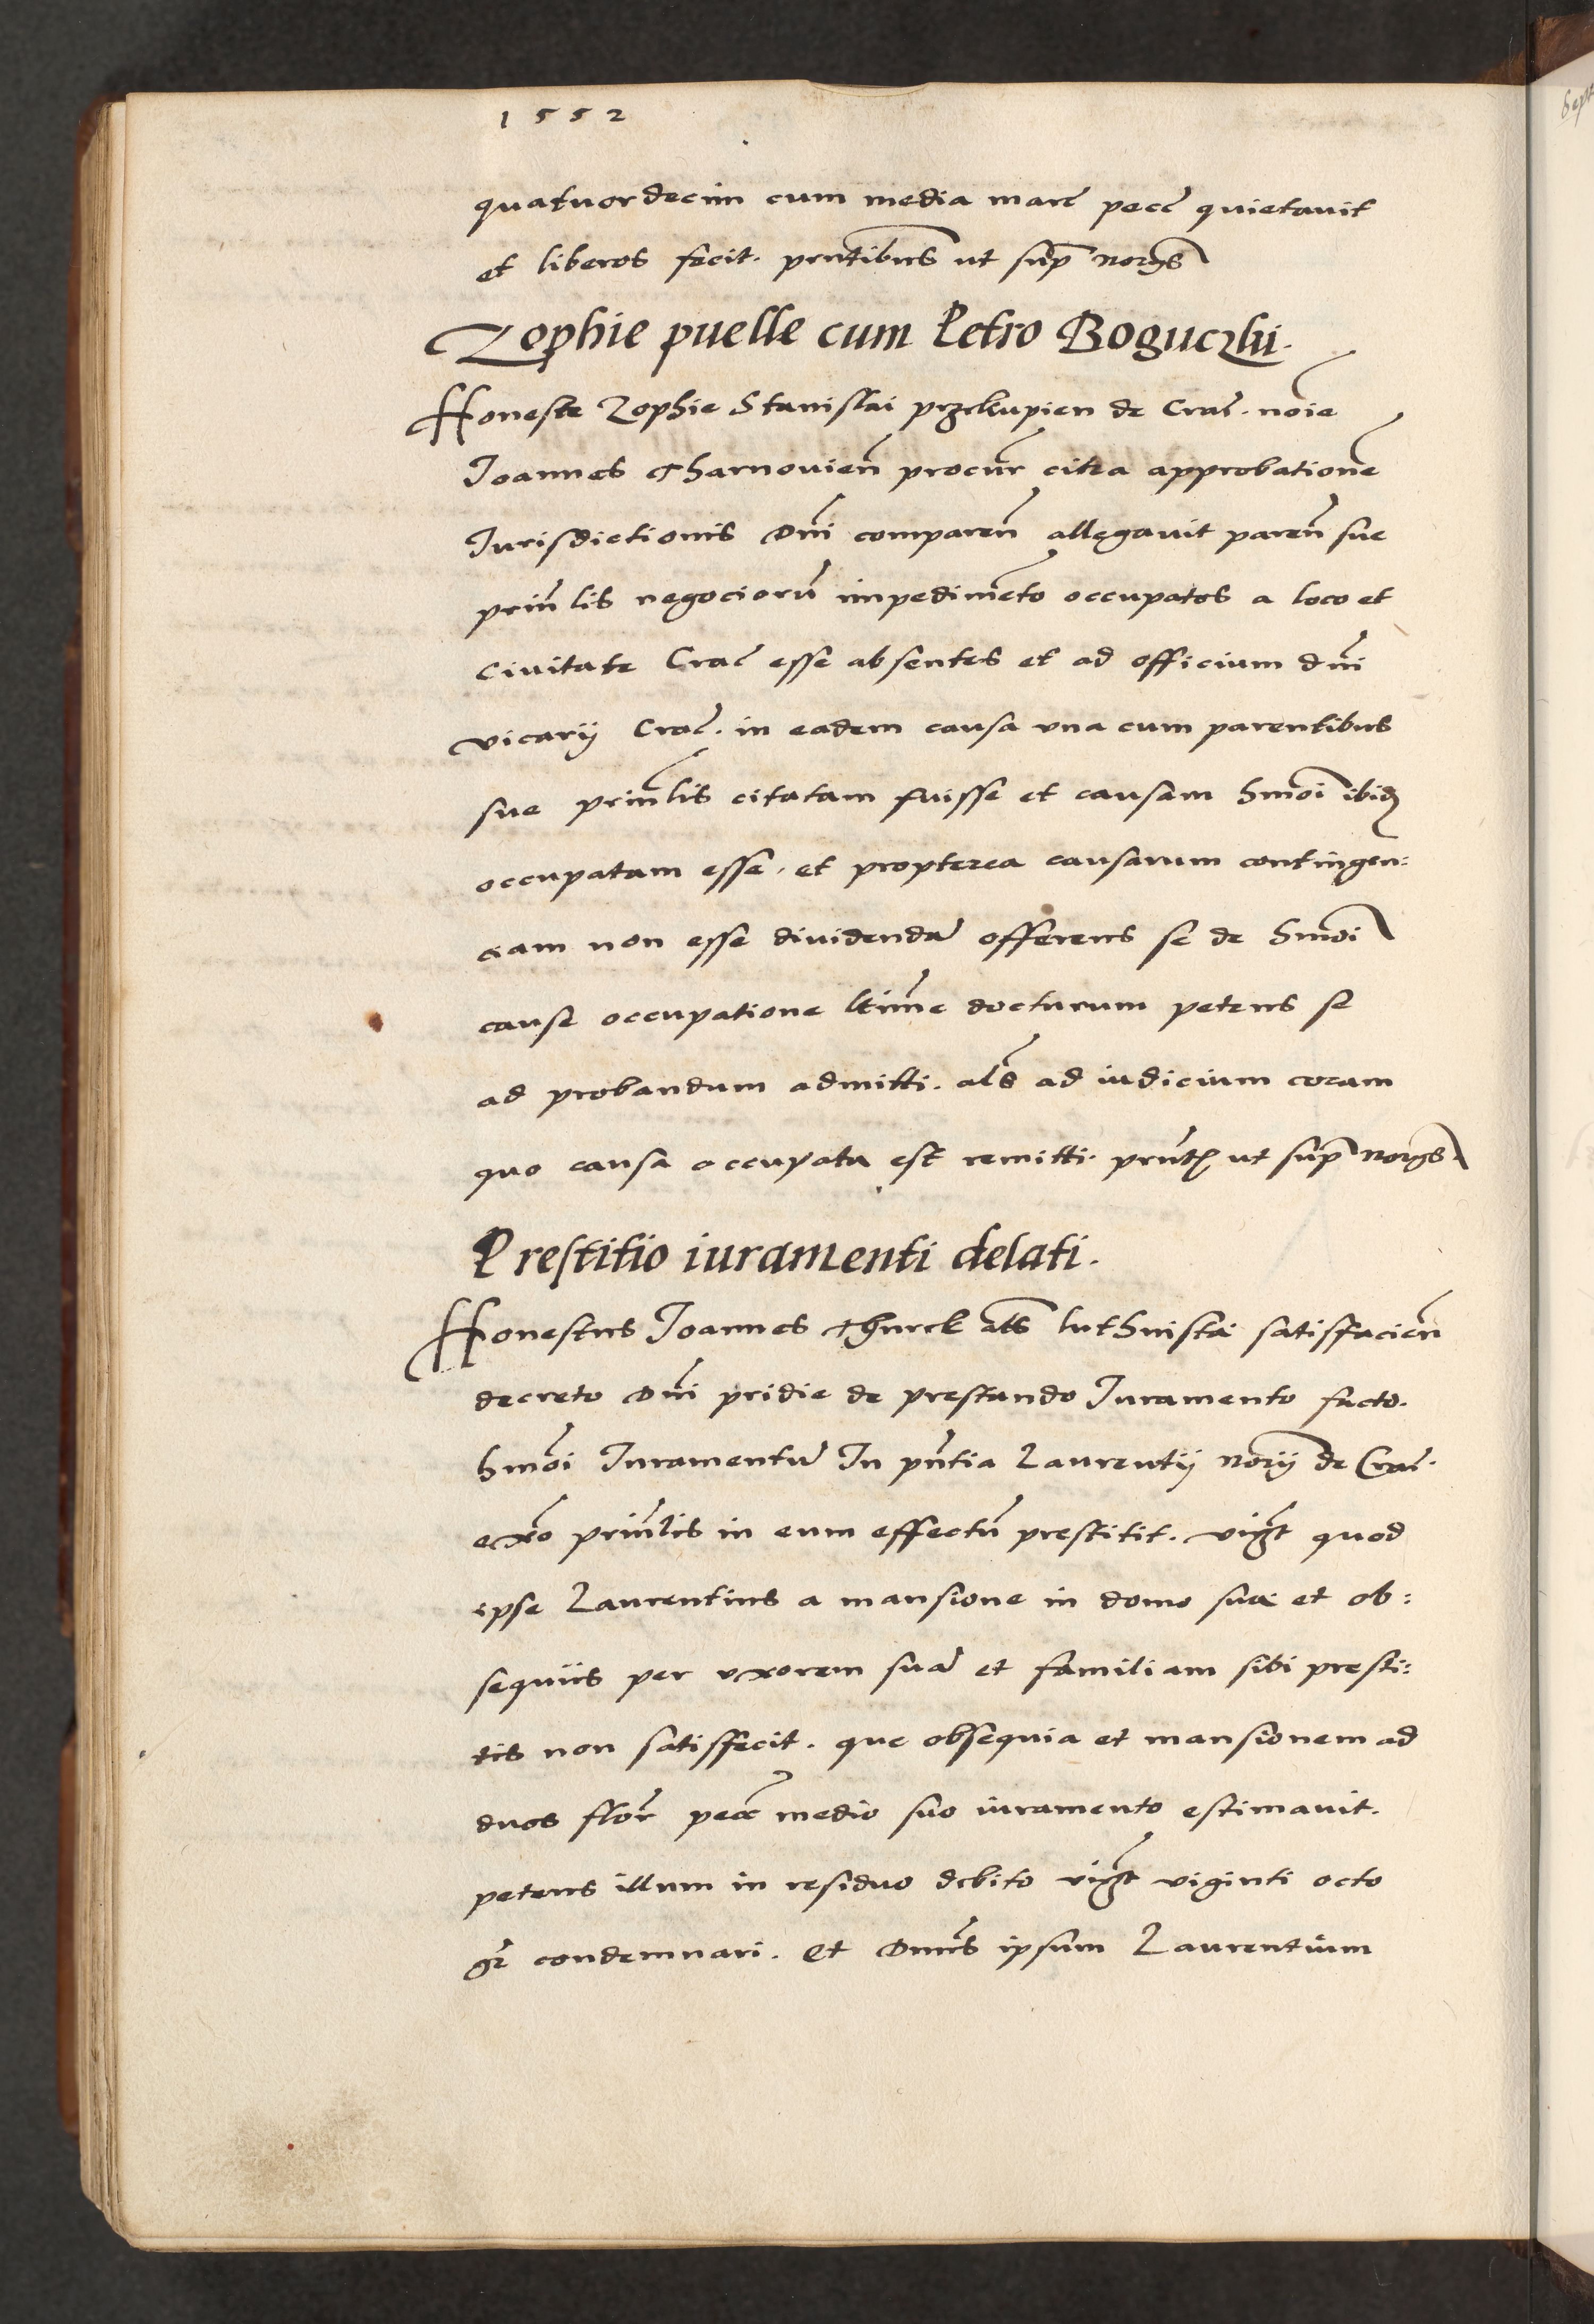 1552
quatuordecim cum media marc pecc quietavit
et liberos fecit. prntibus ut sup norys
Zophie puelle cum Petro Boguczki.
Honeste Zophie Stanislai przekupien de Crac. noie
Joannes Tharnovien procur citra approbatione
Jurisdictionis Dni comparen allegavit paren sue
prinlis negociorum impedimeto occupatos a loco et
civitate Crac esse absentes et ad officium dni
vicarij Crac. in eadem causa una cum parentibus
sue prinlis citatam fuisse et causam hmoi ibid
occupatam esse. et propterea causarum contingen:
ciam non esse dividendam offerens se de hmoi
cause occupatione ltime docturum petens se
ad probandum admitti. als ad iudicium coram
quo causa occupata est remitti. prnt ut sup norys
Prestitio iuramenti delati.
Honestus Joannes Thurek als luthnista satisfacien
decreto Dni pridie de prestando Juramento facto.
hmoi Juramentum In pntia Laurentij norij de Crac.
exo prinlis in eum effectum prestitit. vigt quod
ipse Laurentius a mansione in domo sua et ob:
sequiis per uxorem suam et familiam sibi presti:
tis non satisfecit. que obsequia et mansionem ad
duos flor pecc medio suo iuramento estimavit.
petens illum in residuo debito vigt viginti octo
gr condemnari. Et Dnus ipsum Laurentium